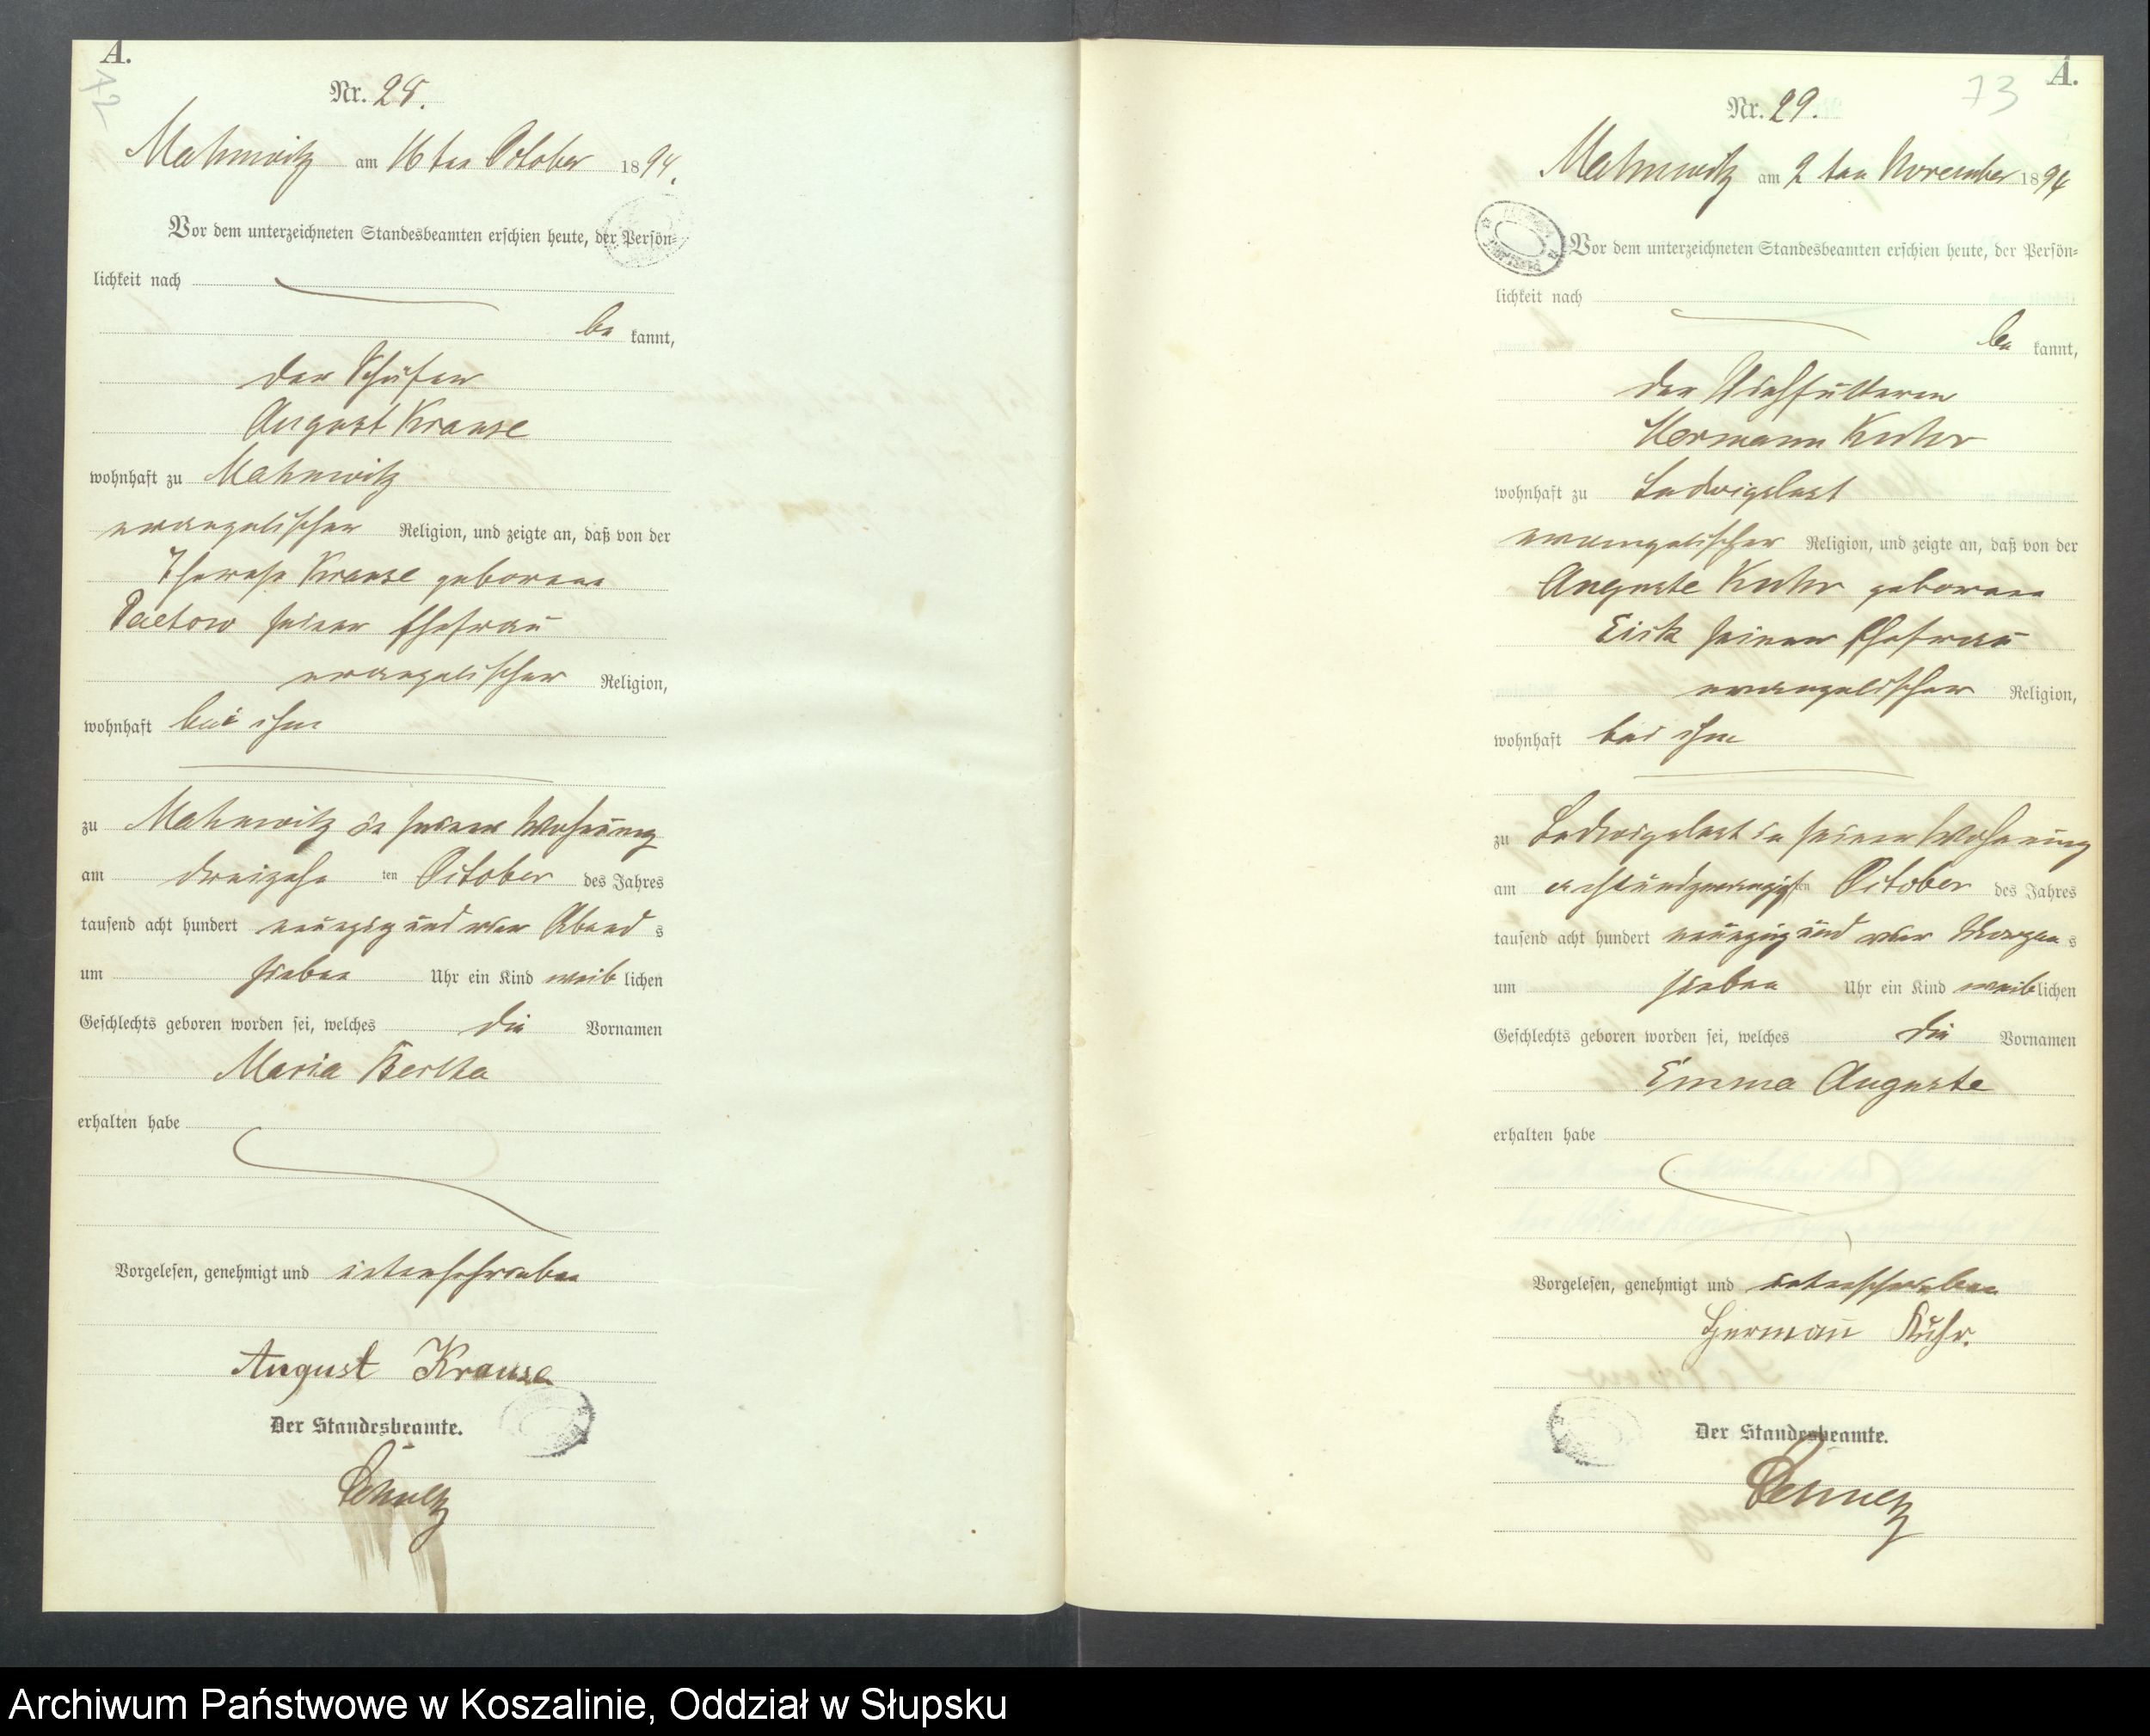 A.
72
Nr. 28.
Mahnwitz am 16ten October 1894.
Vor dem unterzeichneten Standesbeamten erschien heute, der Persön-
lichkeit nach
be kannt,
der Schäfer
August Krause
wohnhaft zu Mahnwitz
evangelischer Religion, und zeigte an, daß von der
Therese Krause geborene
Paetow seiner Ehefrau
evangelischer Religion,
wohnhaft bei ihm
zu Mahnwitz in seiner Wohnung
am dreizehn ten October des Jahres
tausend acht hundert neunzig und vier Abend s
um sieben Uhr ein Kind weib lichen
Geschlechts geboren worden sei, welches die Vornamen
Maria Bertha
erhalten habe
Vorgelesen, genehmigt und unterschrieben
August Krause
Der Standesbeamte.
A.
73
Nr. 29.
Mahnwitz am 2ten November 1894
Vor dem unterzeichneten Standesbeamten erschien heute, der Persön-
lichkeit nach
be kannt,
der Viehfütterer
Hermann Kuhr
wohnhaft zu Ludwigslust
evangelischer Religion, und zeigte an, daß von der
Auguste Kuhr geborene
Eick seiner Ehefrau
evangelischer Religion,
wohnhaft bei ihm
zu Ludwigslust in seiner Wohnung
am achtundzwanzigsten October des Jahres
tausend acht hundert neunzig und vier Morgen s
um sieben Uhr ein Kind weiblichen
Geschlechts geboren worden sei, welches die Vornamen
Emma Auguste
erhalten habe
Vorgelesen, genehmigt und unterschrieben
Hermann Kuhr.
Der Standesbeamte.
Archiwum Państwowe w Koszalinie, Oddział w Słupsku